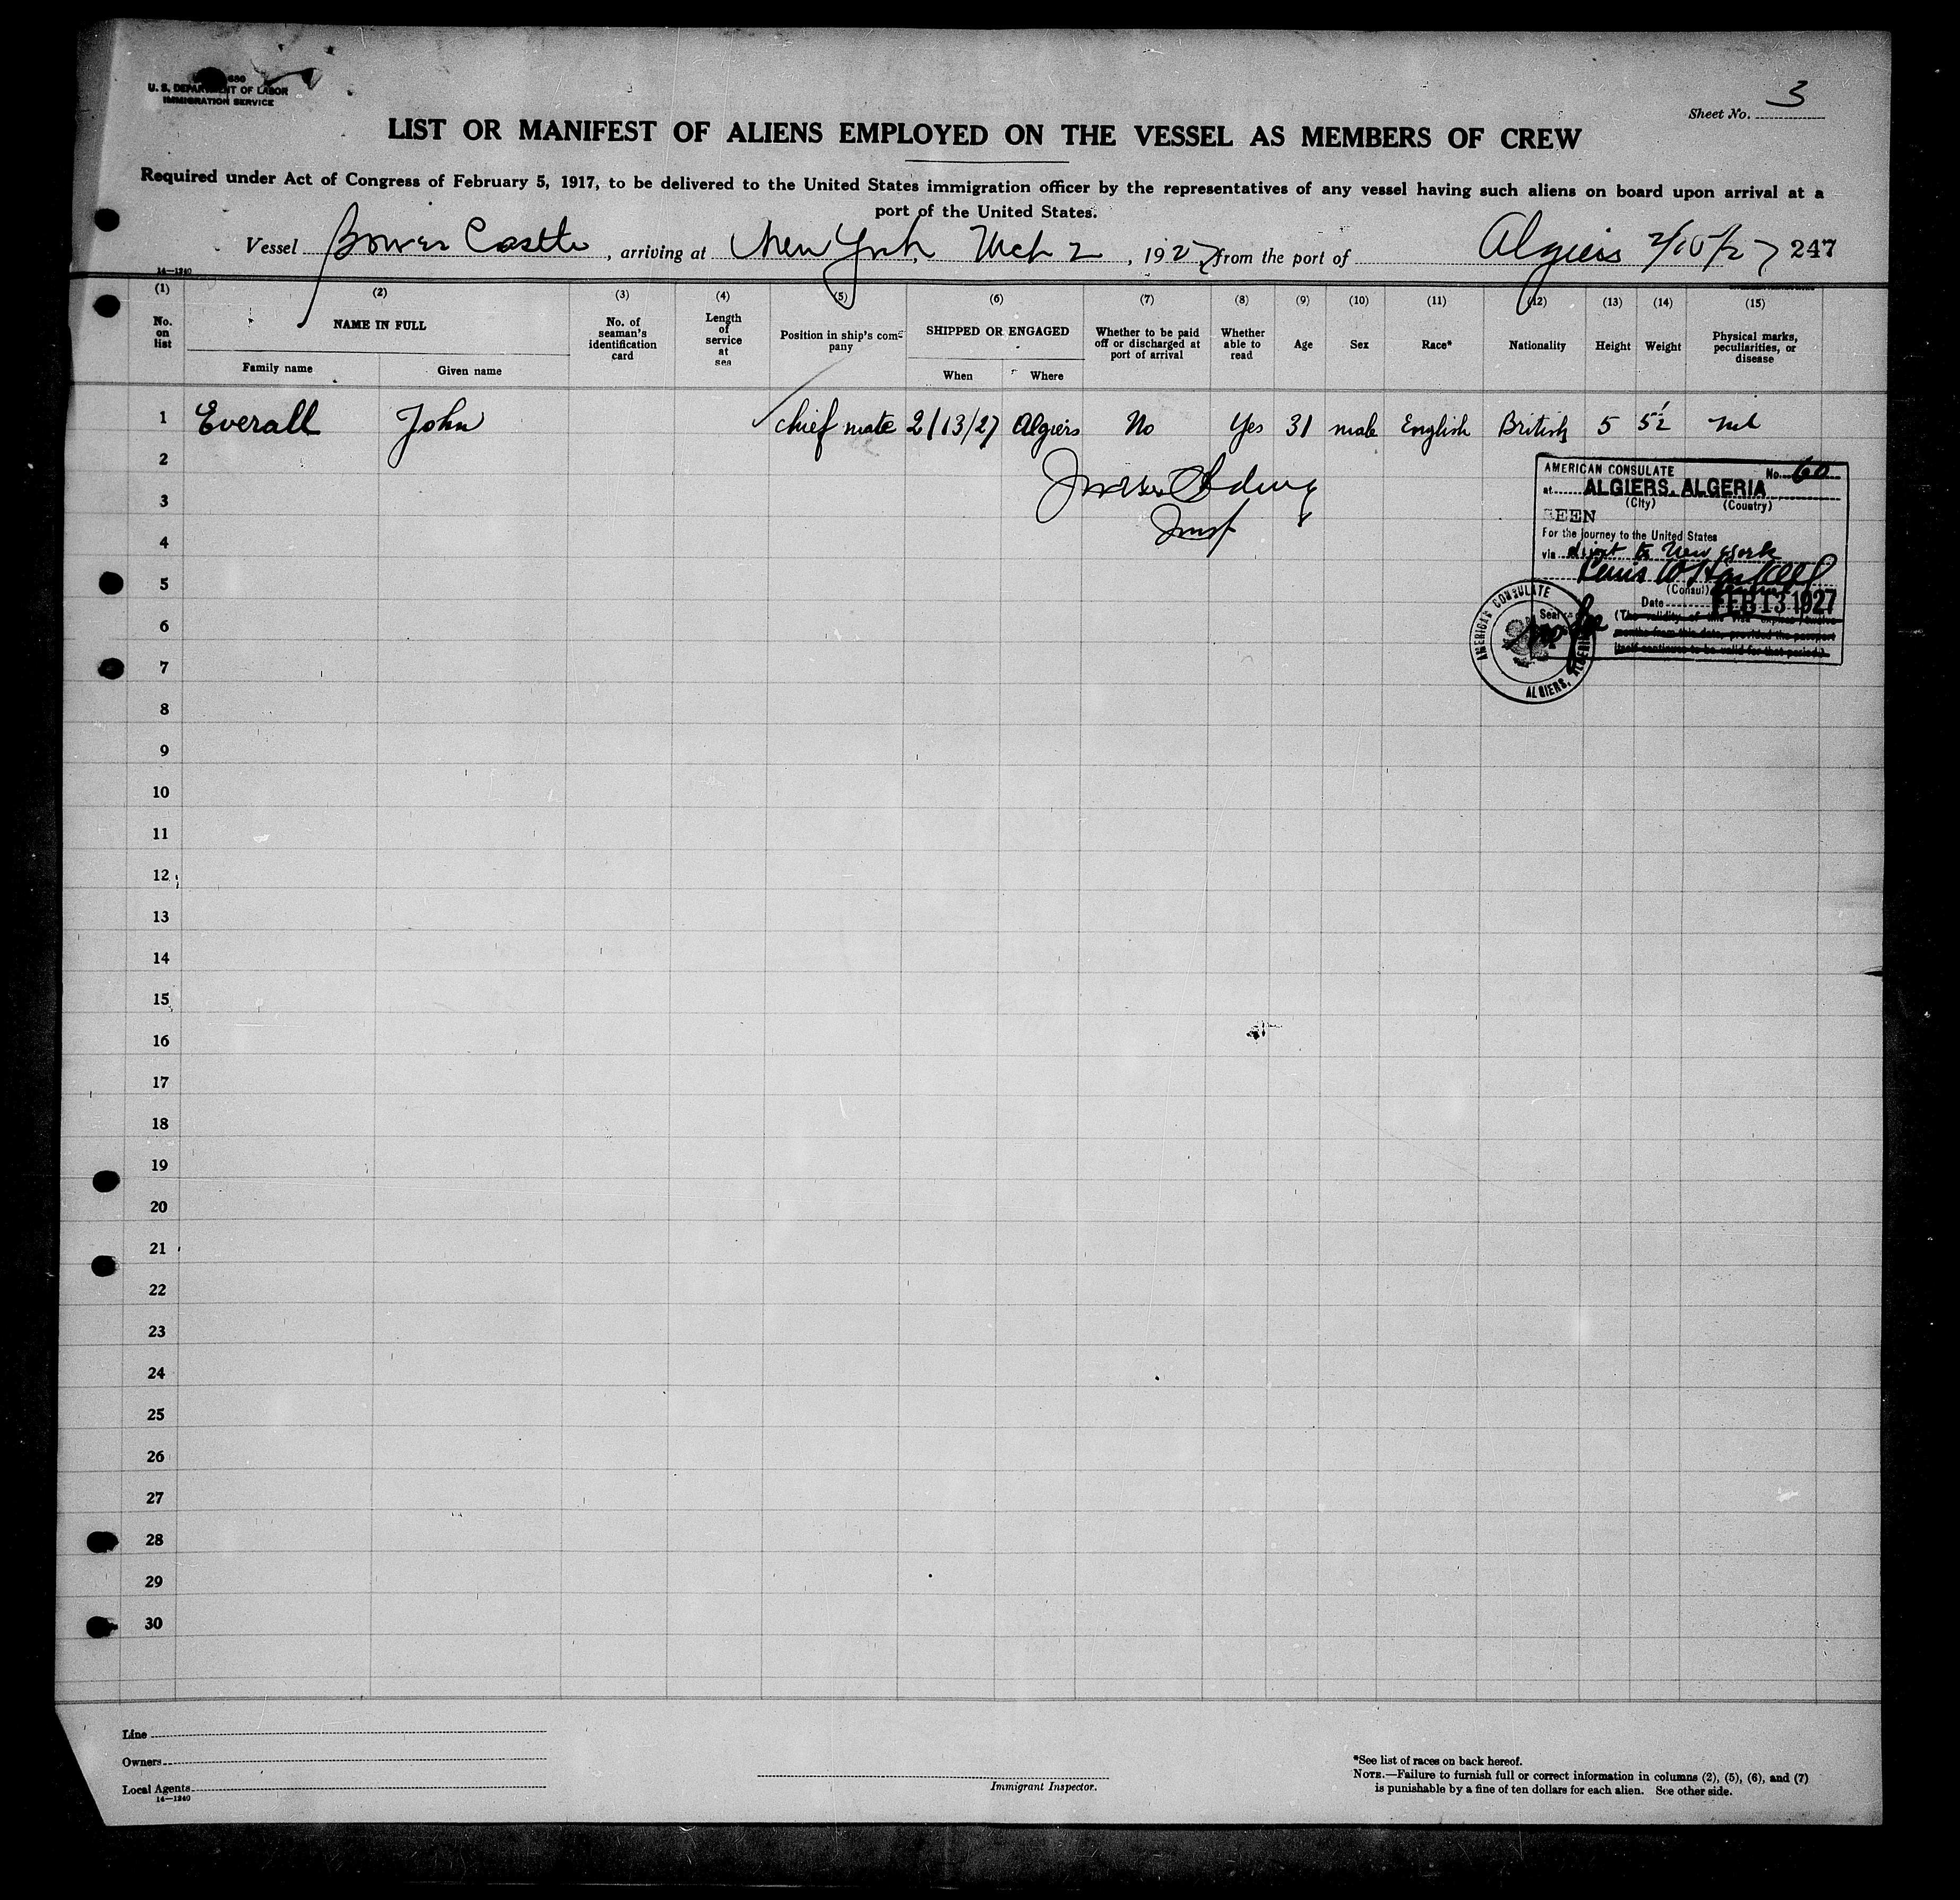 680
U. S. DEPARTMENT OF LABOR
IMMIGRATION SERVICE
Sheet No. 3
LIST OR MANIFEST OF ALIENS EMPLOYED ON THE VESSEL AS MEMBERS OF CREW
Required under Act of Congress of February 5, 1917, to be delivered to the United States immigration officer by the representatives of any vessel having such aliens on board upon arrival at a
port of the United States.
Vessel Bower Castle, arriving at New York, Mch 2, 1927, from the port of Algiers 2/15/27 247
14—1240
(1) (2) (3) (4) (5) (6) (7) (8) (9) (10) (11) (12) (13) (14) (15)
No. on list NAME IN FULL No. of seaman's identification card Length of service at sea Position in ship's company SHIPPED OR ENGAGED Whether to be paid off or discharged at port of arrival Whether able to read Age Sex Race* Nationality Height Weight Physical marks, peculiarities, or disease
Family name Given name When Where
1 Everall John chief mate 2/13/27 Algiers No Yes 31 male English British 5 5½ nil
2
3
4
5
6
7
8
9
10
11
12
13
14
15
16
17
18
19
20
21
22
23
24
25
26
27
28
29
30
AMERICAN CONSULATE No. 60
at ALGIERS, ALGERIA
(City) (Country)
SEEN
For the journey to the United States
via direct to New York
Lewis W Haskell
(Consul) General
Date FEB 13 1927
(The validity of this visa expires twelve
months from this date, provided the passport
itself continues to be valid for that period.)
Seal
no fee
AMERICAN CONSULATE
ALGIERS, ALGERIA
Line
Owners
Local Agents
14—1240
Immigrant Inspector.
*See list of races on back hereof.
NOTE.—Failure to furnish full or correct information in columns (2), (5), (6), and (7)
is punishable by a fine of ten dollars for each alien. See other side.